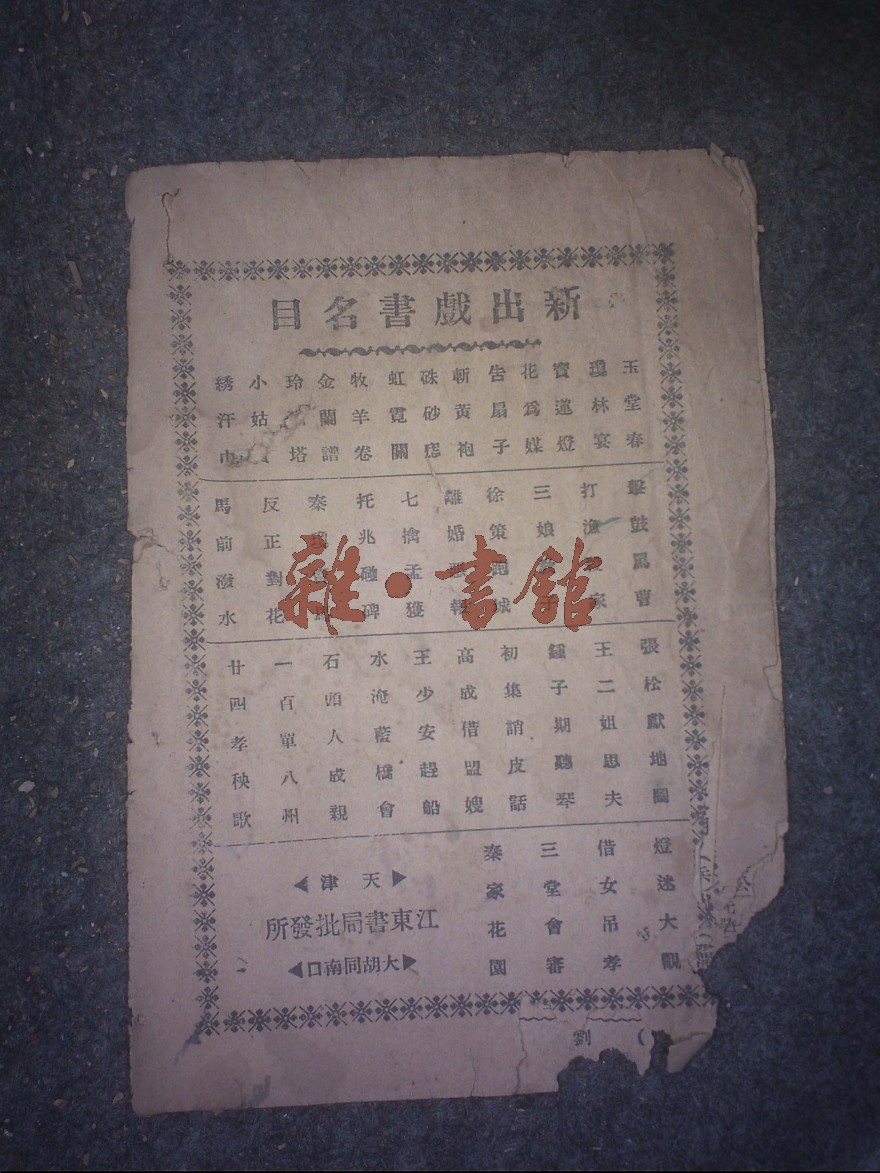 新出戲書名目
玉堂春
瓊林宴
寶蓮燈
花爲媒
告扇子
斬黃袍
硃砂痣
虹霓關
牧羊卷
金蘭譜
玲塔
小姑
綉汗巾
擊鼓罵曹
打漁家
三娘
徐策跑城
離婚報
七擒孟獲
托兆碰碑
秦瓊
反正對花
馬前潑水
張松獻地圖
王二姐思夫
鍾子期聽琴
初集誚皮話
高成借盟嫂
王少安趕船
水淹藍橋會
石頭人成親
一百單八州
廿四孝秧歌
燈迷大觀
借女吊孝
三堂會審
秦家花園
天津
江東書局批發所
大胡同南口
劉
雜·書館